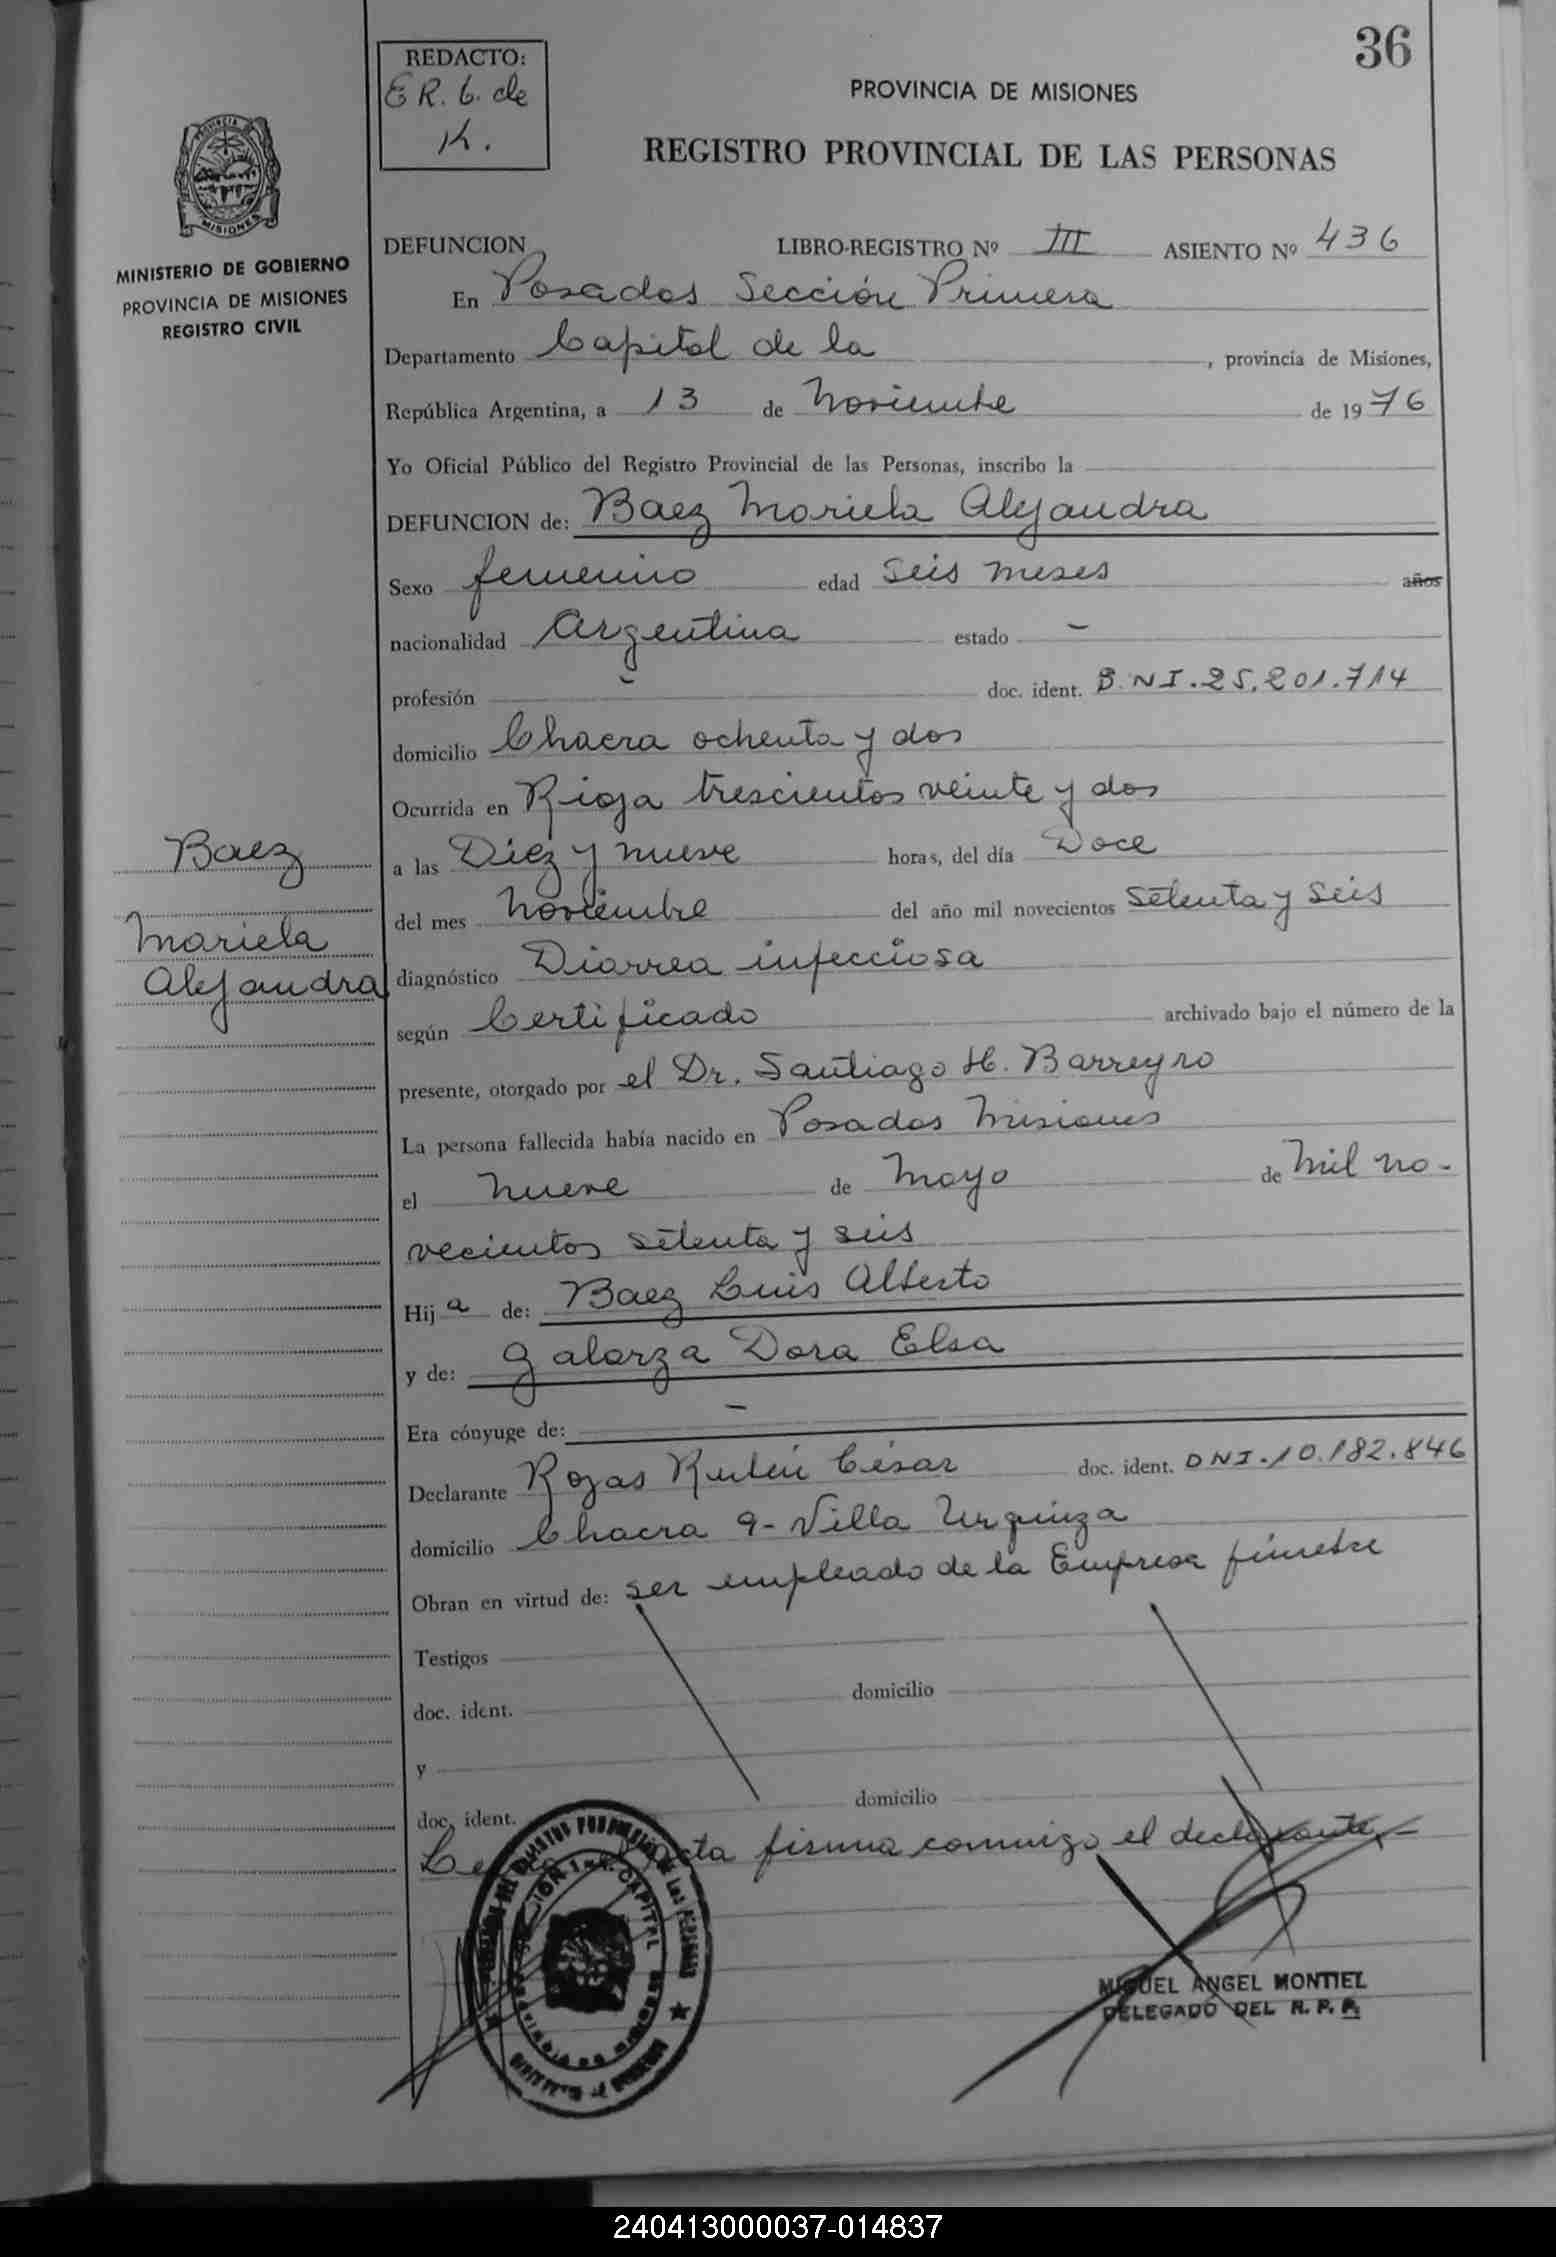 36
REDACTO:
E R. G. de
K.
PROVINCIA DE MISIONES
REGISTRO PROVINCIAL DE LAS PERSONAS
PROVINCIA DE
MISIONES
MINISTERIO DE GOBIERNO
PROVINCIA DE MISIONES
REGISTRO CIVIL
DEFUNCION LIBRO-REGISTRO Nº III ASIENTO Nº 436
En Posadas Sección Primera
Departamento Capital de la , provincia de Misiones,
República Argentina, a 13 de Noviembre de 1976
Yo Oficial Público del Registro Provincial de las Personas, inscribo la
DEFUNCION de: Baez Mariela Alejandra
Sexo femenino edad seis meses años
nacionalidad Argentina estado -
profesión - doc. ident. D.N.I. 25.201.714
domicilio Chacra ochenta y dos
Ocurrida en Rioja trescientos veinte y dos
a las Diez y nueve horas, del día Doce
del mes Noviembre del año mil novecientos setenta y seis
Baez
Mariela
Alejandra
diagnóstico Diarrea infecciosa
según Certificado archivado bajo el número de la
presente, otorgado por el Dr. Santiago H. Barreyro
La persona fallecida había nacido en Posadas Misiones
el nueve de Mayo de Mil no-
vecientos setenta y seis
Hija de: Baez Luis Alberto
y de: Galarza Dora Elsa
Era cónyuge de: -
Declarante Rojas Rubén César doc. ident. DNI. 10.182.846
domicilio Chacra 9- Villa Urquiza
Obran en virtud de: ser empleado de la Empresa fúnebre
Testigos
doc. ident. domicilio
y
doc. ident. domicilio
acta firma conmigo el declarante.-
CAPITAL
MIGUEL ANGEL MONTIEL
DELEGADO DEL R. P. P.
240413000037-014837